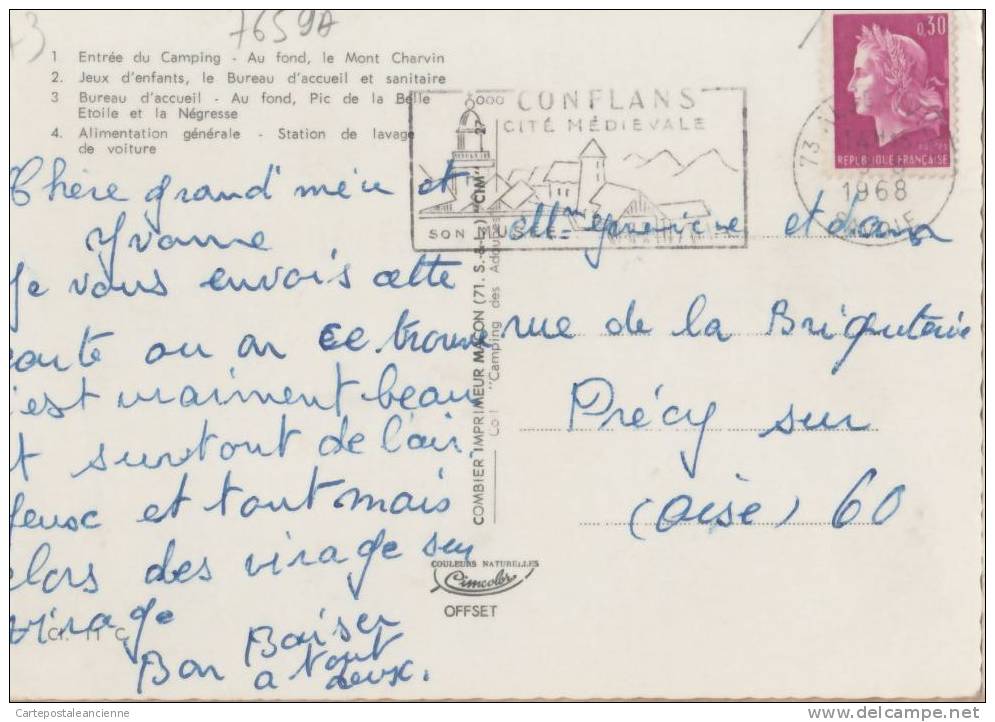 7659A
1 Entrée du Camping - Au fond, le Mont Charvin
2. Jeux d'enfants, le Bureau d'accueil et sanitaire
3 Bureau d'accueil - Au fond, Pic de la Belle
Etoile et la Négresse
4. Alimentation générale - Station de lavage
de voiture
Chère grand'mère et
Yvonne
Je vous envois cette
carte ou on ce trouve
c'est vraiment beau
et surtout de l'air
et tout mais
alors des virage sur
virage
Bon Baiser
a tout
deux.
Cl. 11 C
COMBIER IMPRIMEUR MACON (71. S.-&-L.) "CIM"
Coll "Camping des Adoubes
COULEURS NATURELLES
Cimcolor
OFFSET
CONFLANS
CITÉ MÉDIEVALE
SON MUSÉE
0,30
REPUBLIQUE FRANÇAISE
73
1968
SAVOIE
et
rue de la
Précy sur
(oise) 60
Cartepostaleancienne
www.delcampe.net